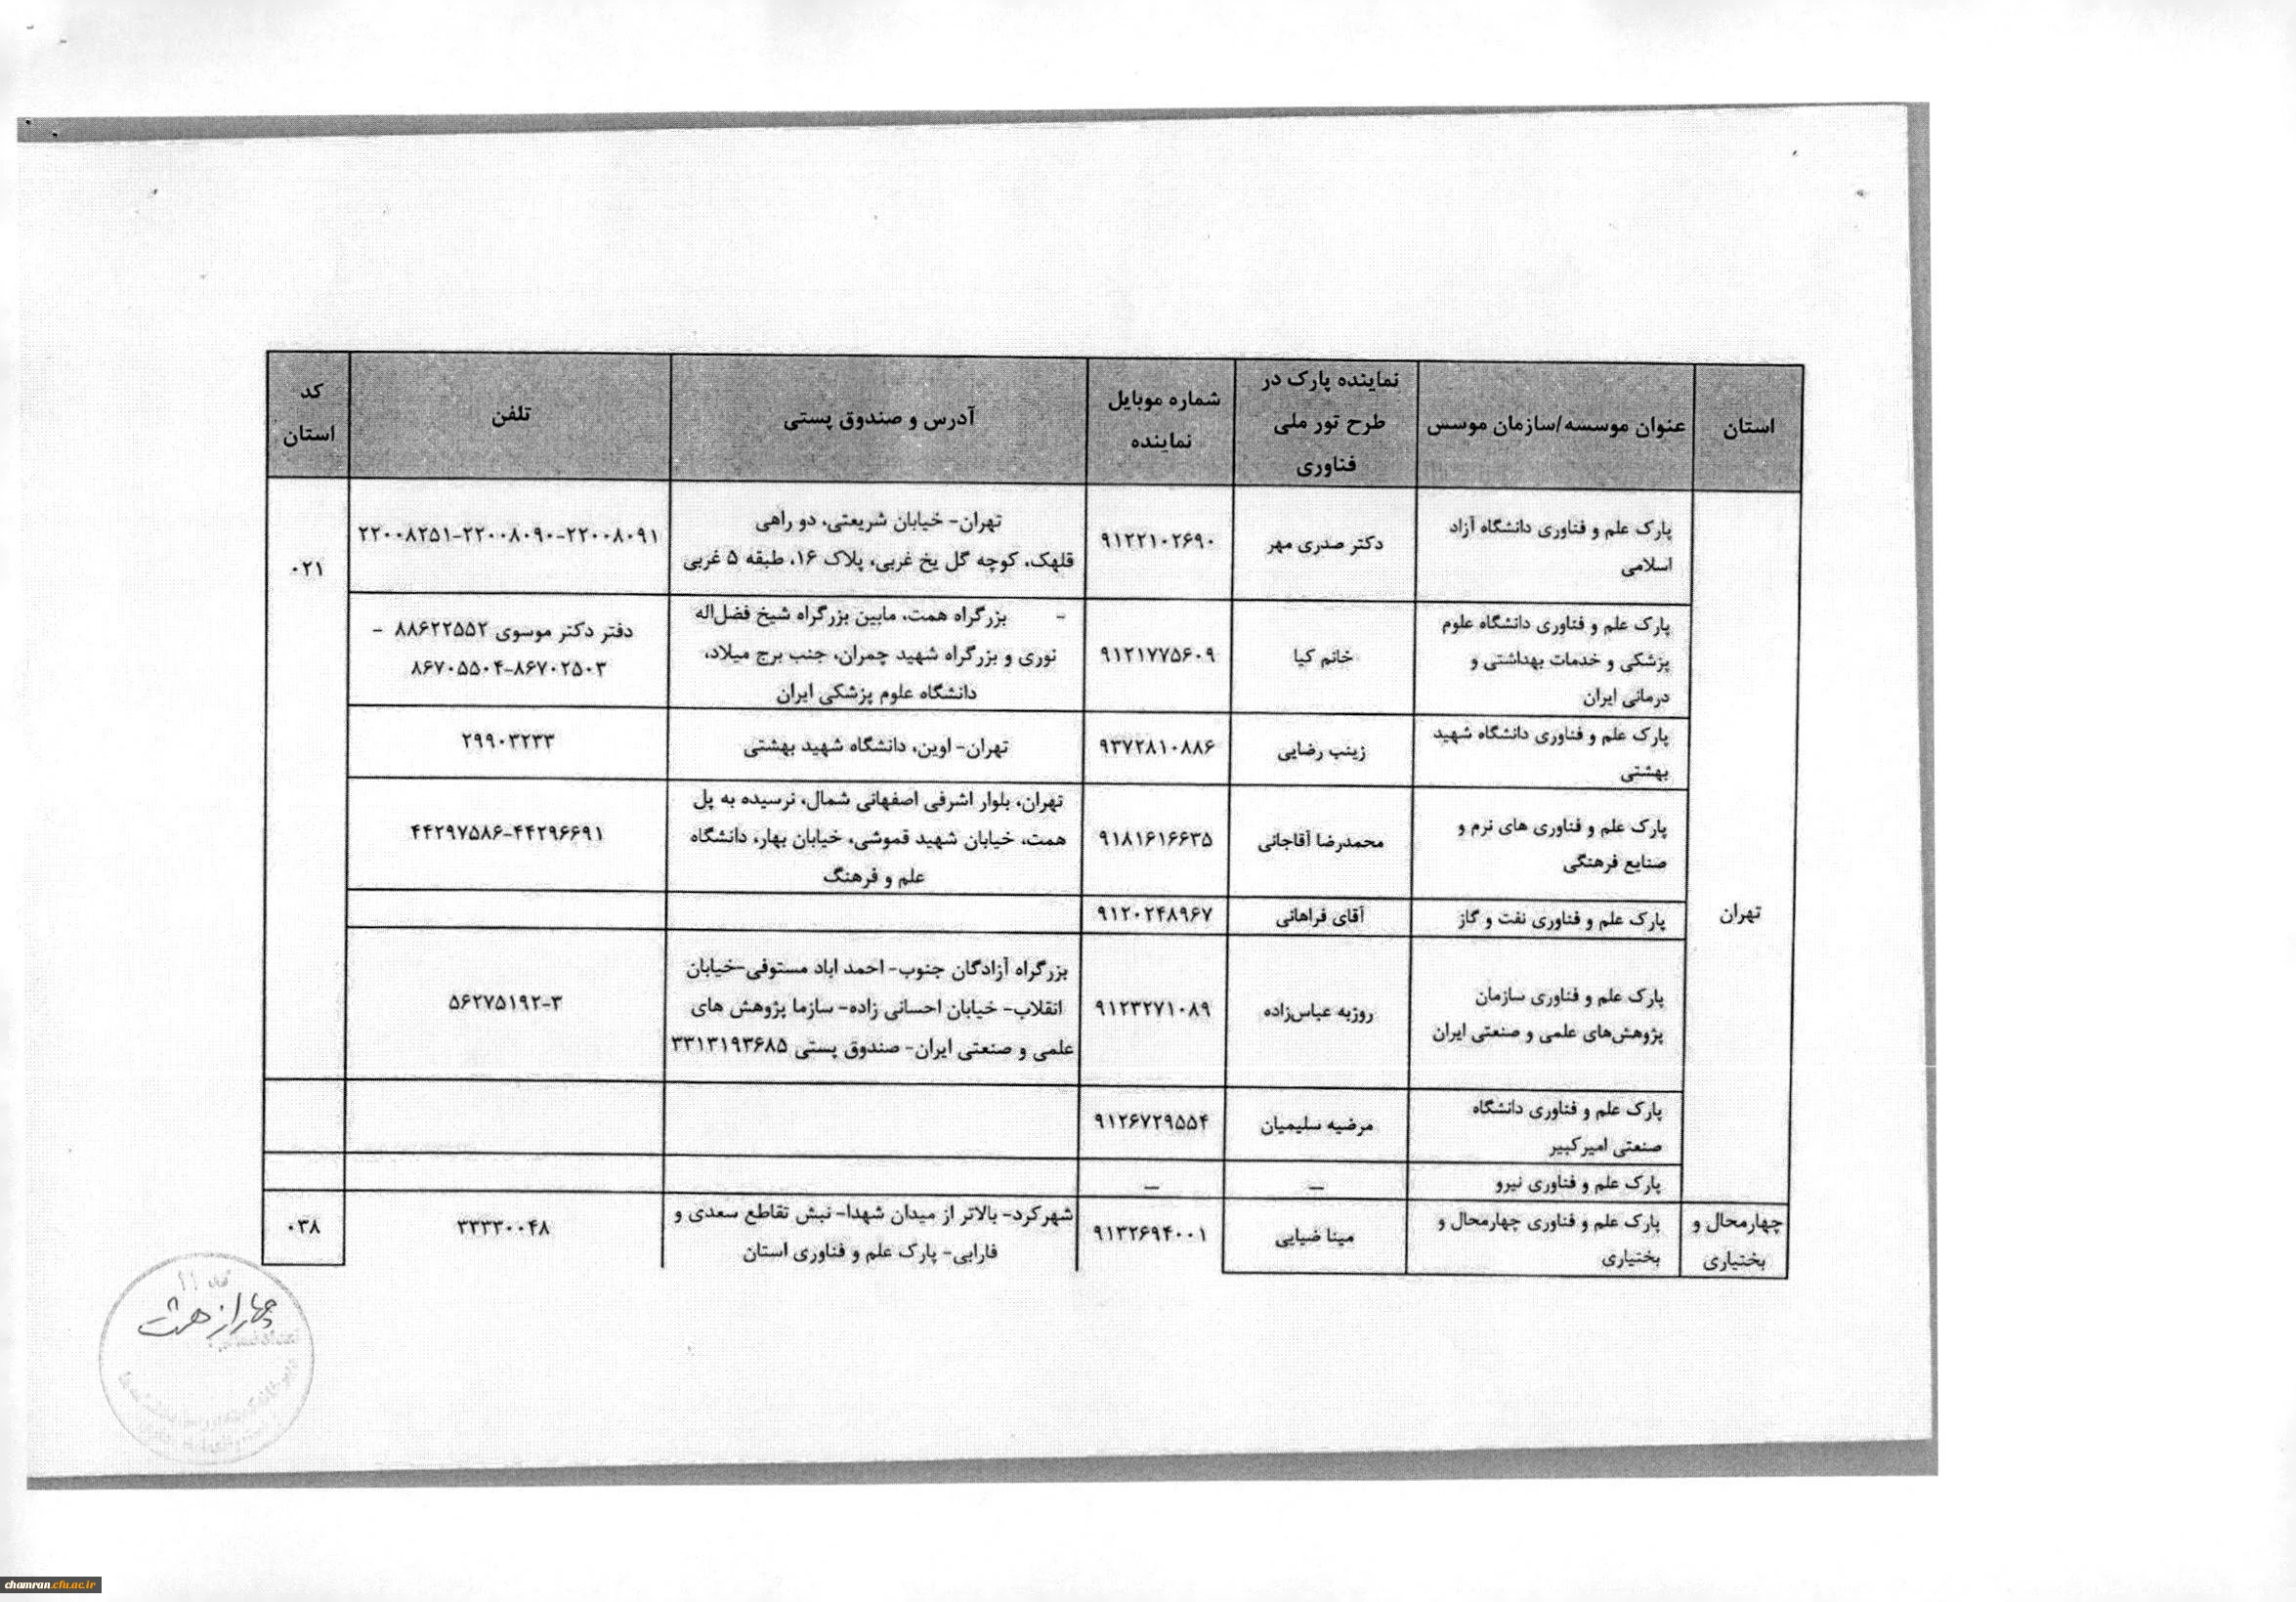 استان
عنوان موسسه/سازمان موسس
نماینده پارک در
طرح تور ملی
فناوری
شماره موبایل
نماینده
آدرس و صندوق پستی
تلفن
کد
استان
تهران
پارک علم و فناوری دانشگاه آزاد
اسلامی
دکتر صدری مهر
۹۱۲۲۱۰۲۶۹۰
تهران- خیابان شریعتی، دو راهی
قلهک، کوچه گل یخ غربی، پلاک ۱۶، طبقه ۵ غربی
۲۲۰۰۸۲۵۱-۲۲۰۰۸۰۹۰-۲۲۰۰۸۰۹۱
۰۲۱
پارک علم و فناوری دانشگاه علوم
پزشکی و خدمات بهداشتی و
درمانی ایران
خانم کیا
۹۱۲۱۷۷۵۶۰۹
- بزرگراه همت، مابین بزرگراه شیخ فضل‌اله
نوری و بزرگراه شهید چمران، جنب برج میلاد،
دانشگاه علوم پزشکی ایران
دفتر دکتر موسوی ۸۸۶۲۲۵۵۲ -
۸۶۷۰۵۵۰۴-۸۶۷۰۲۵۰۳
پارک علم و فناوری دانشگاه شهید
بهشتی
زینب رضایی
۹۳۷۲۸۱۰۸۸۶
تهران- اوین، دانشگاه شهید بهشتی
۲۹۹۰۳۲۳۳
پارک علم و فناوری های نرم و
صنایع فرهنگی
محمدرضا آقاجانی
۹۱۸۱۶۱۶۶۳۵
تهران، بلوار اشرفی اصفهانی شمال، نرسیده به پل
همت، خیابان شهید قموشی، خیابان بهار، دانشگاه
علم و فرهنگ
۴۴۲۹۷۵۸۶-۴۴۲۹۶۶۹۱
پارک علم و فناوری نفت و گاز
آقای فراهانی
۹۱۲۰۲۴۸۹۶۷
پارک علم و فناوری سازمان
پژوهش‌های علمی و صنعتی ایران
روزبه عباس‌زاده
۹۱۲۳۲۷۱۰۸۹
بزرگراه آزادگان جنوب- احمد اباد مستوفی-خیابان
انقلاب- خیابان احسانی زاده- سازما پژوهش های
علمی و صنعتی ایران- صندوق پستی ۳۳۱۳۱۹۳۶۸۵
۵۶۲۷۵۱۹۲-۳
پارک علم و فناوری دانشگاه
صنعتی امیرکبیر
مرضیه سلیمیان
۹۱۲۶۷۲۹۵۵۴
پارک علم و فناوری نیرو
–
–
چهارمحال و
بختیاری
پارک علم و فناوری چهارمحال و
بختیاری
مینا ضیایی
۹۱۳۲۶۹۴۰۰۱
شهرکرد- بالاتر از میدان شهدا- نبش تقاطع سعدی و
فارابی- پارک علم و فناوری استان
۳۳۳۳۰۰۴۸
۰۳۸
چهار از هشت
chamran.cfu.ac.ir